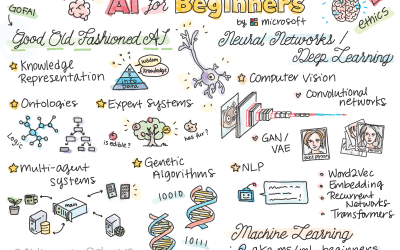 GOFAI
AI for Beginners
by microsoft
ethics
Good Old Fashioned AI
Knowledge
Representation
wisdom
Knowledge
info
Data
Ontologies
Logic
Expert Systems
is edible?
has fur?
Multi-agent
systems
Genetic
Algorithms
10010
10111
Neural Networks /
Deep Learning
Computer Vision
Convolutional
networks
GAN/
VAE
NLP
Word2Vec
Embedding
Recurrent
Networks
Transformers
Machine Learning